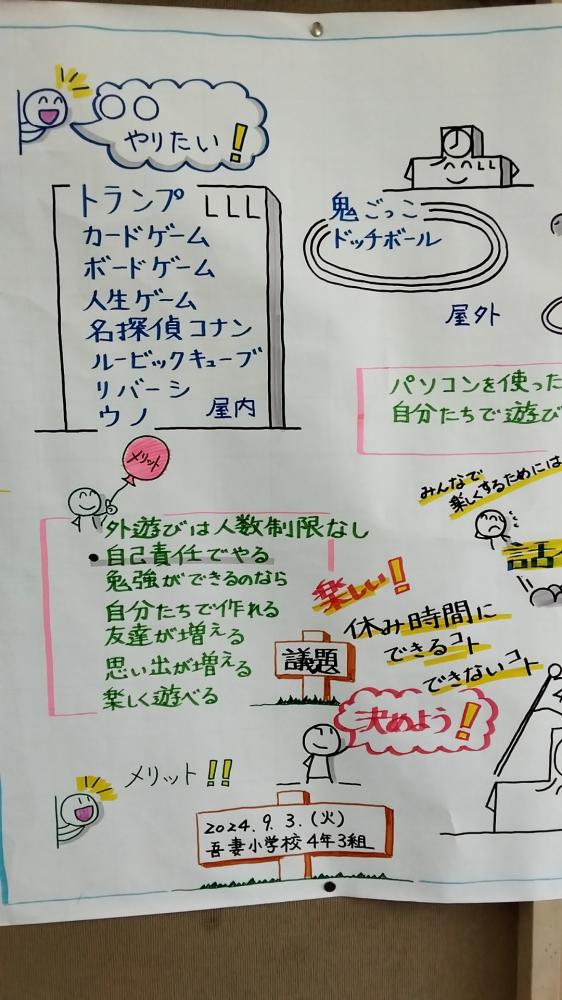 ○○
やりたい!
トランプ
カードゲーム
ボードゲーム
人生ゲーム
名探偵コナン
ルービックキューブ
リバーシ
ウノ
屋内
鬼ごっこ
ドッチボール
屋外
パソコンを使った
自分たちで遊び
メリット
外遊びは人数制限なし
•自己責任でやる
勉強ができるのなら
自分たちで作れる
友達が増える
思い出が増える
楽しく遊べる
みんなで
楽しくするためには
話
楽しい!
議題
休み時間に
できるコト
できないコト
決めよう!
メリット!!
2024.9.3.(火)
吾妻小学校4年3組